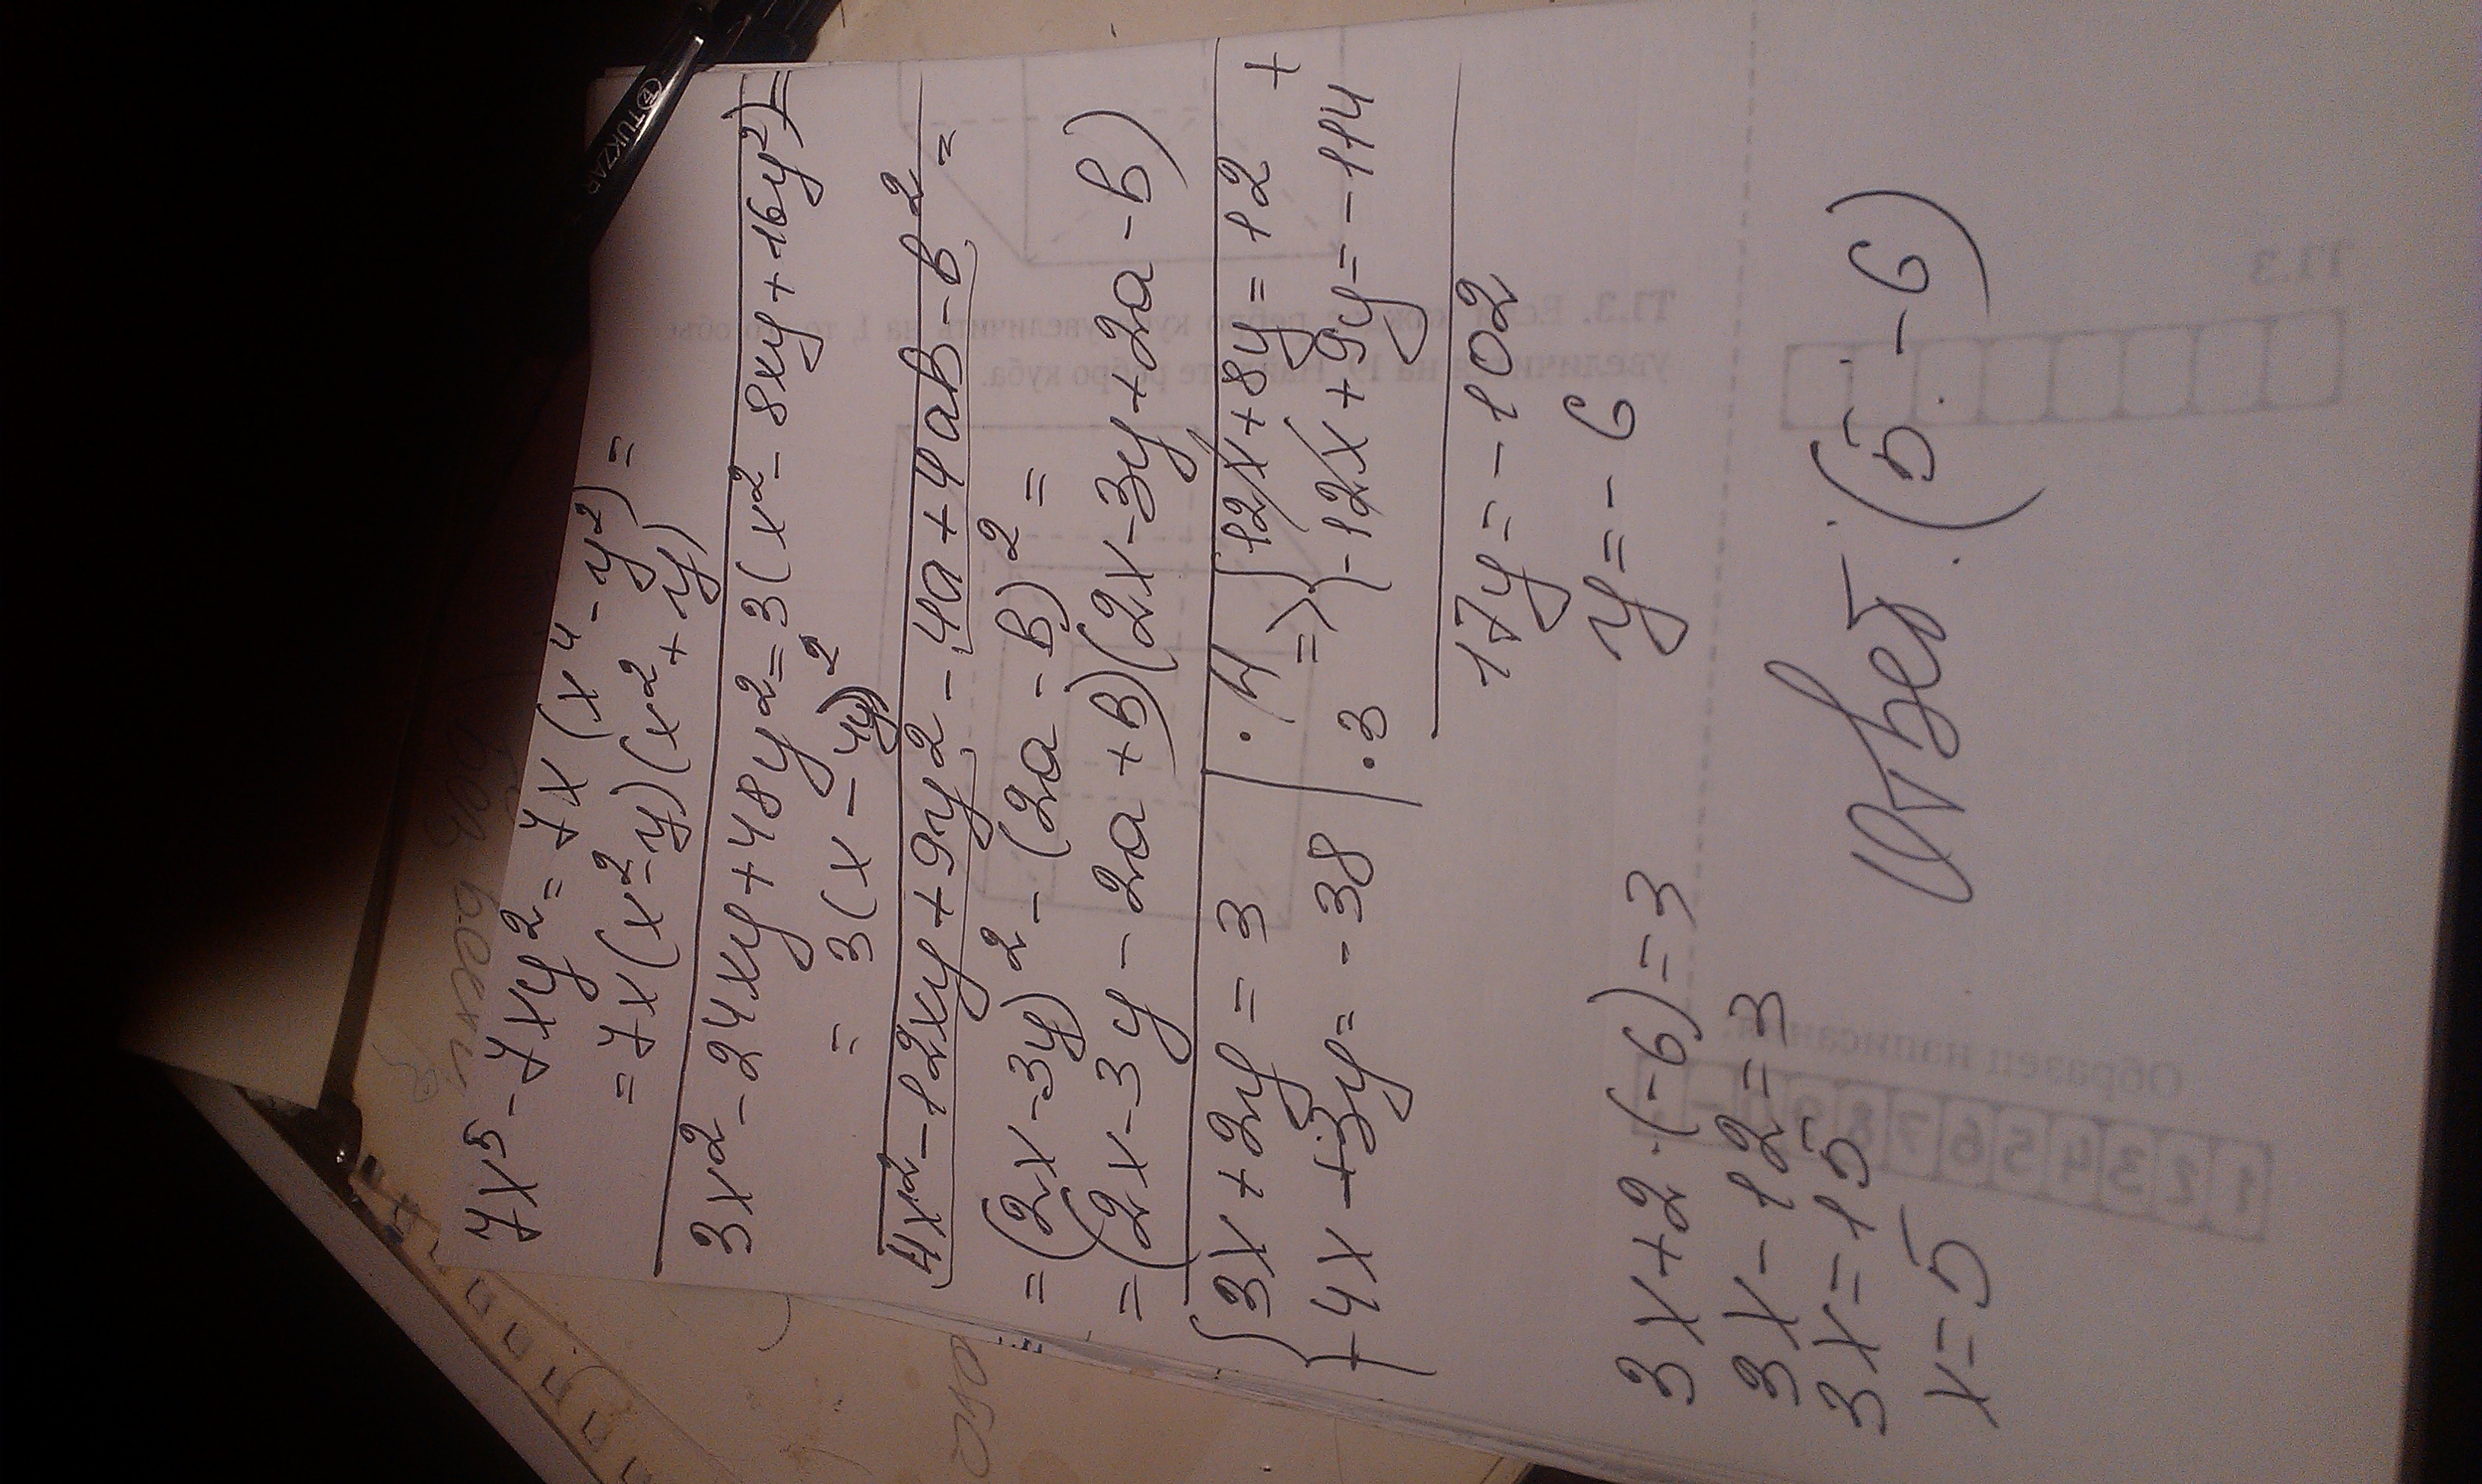 7x⁵ - 7xy² = 7x(x⁴ - y²) =
= 7x(x² - y)(x² + y)
3x² - 24xy + 48y² = 3(x² - 8xy + 16y²) =
= 3(x - 4y)²
4x² - 12xy + 9y² - 4a + 4ab - b² =
= (2x - 3y)² - (2a - b)² =
= (2x - 3y - 2a + b)(2x - 3y + 2a - b)
{3x + 2y = 3 | · 4 => {12x + 8y = 12 +
-4x + 3y = -38 | · 3 -12x + 9y = -114
17y = -102
y = -6
3x + 2·(-6) = 3
3x - 12 = 3
3x = 15
x = 5
Ответ: (5; -6)
TUKZAR
Т1.3. Если каждое ребро куба увеличить на 1, то его объ
увеличится на 19. Найдите ребро куба.
Т1.3
Образец написания:
1 2 3 4 5 6 7 8 9 0 - ,